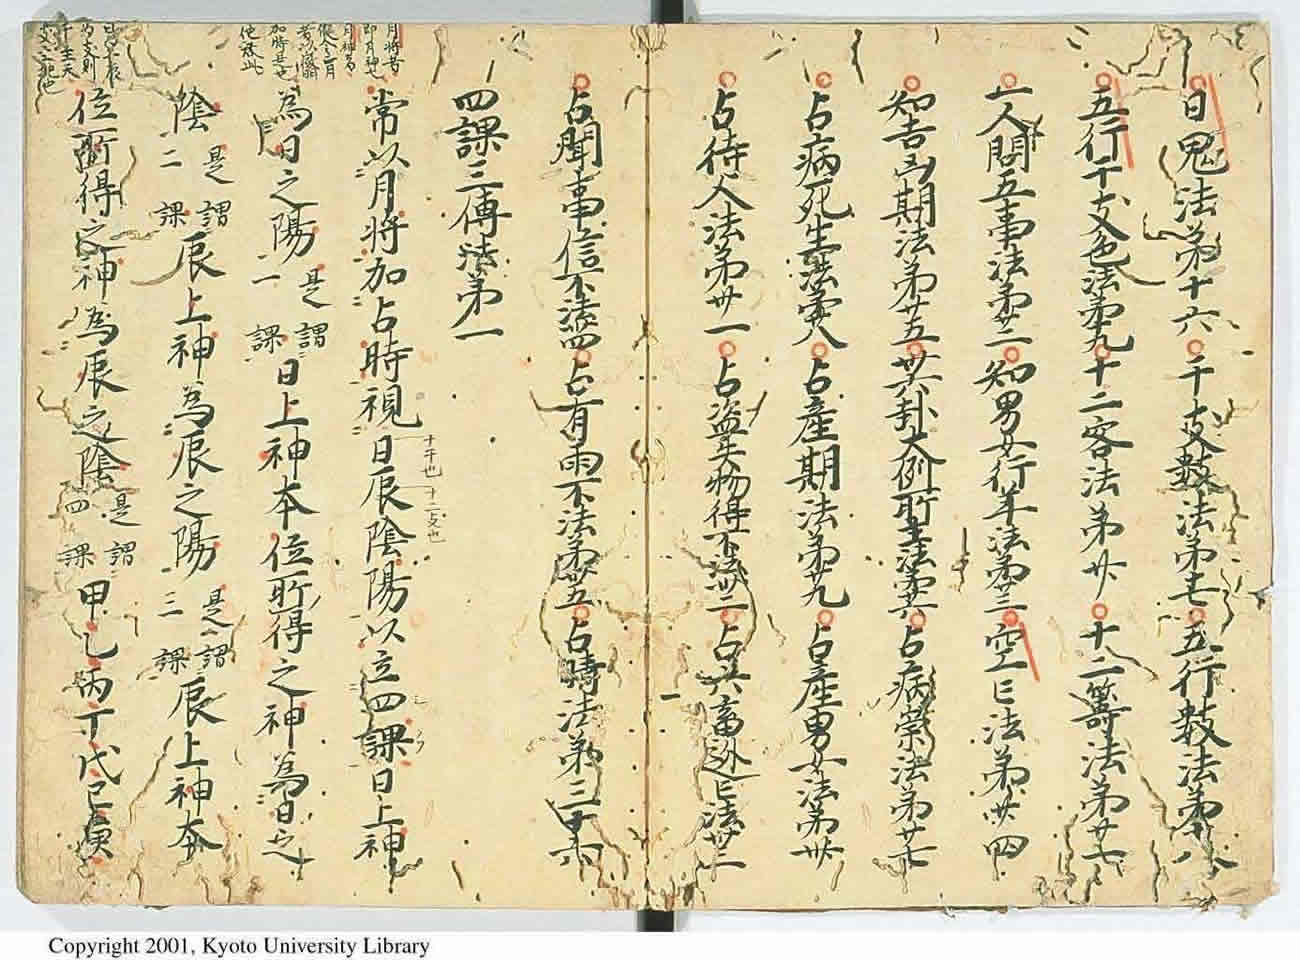 日鬼法第十六 干支数法第十七 五行数法第十八
五行干支色法第十九 十二客法第廿 十二籌法第廿一
一人問五事法第廿二 知男女行年法第廿三 空亡法第廿四
知吉凶期法第廿五 卅六卦大例所主法第廿六 占病祟法第廿七
占病死生法第廿八 占産期法第廿九 占産男女法第卅
占待人法第卅一 占盗失物得不法卅二 占六畜逃亡法卅三
占聞事信不法卅四 占有雨不法第卅五 占晴法第三十六
四課三傳法第一
常以月将加占時視日辰陰陽以立四課日上神
十干也 十二支也
為日之陽 是謂一課 日上神本位所得之神為日之
陰 是謂二課 辰上神為辰之陽 是謂三課 辰上神本
位所得之神為辰之陰 是謂四課 甲乙丙丁戊己庚
月将者
即月神也
加時是也
Copyright 2001, Kyoto University Library